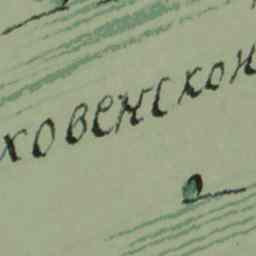 ховенскон